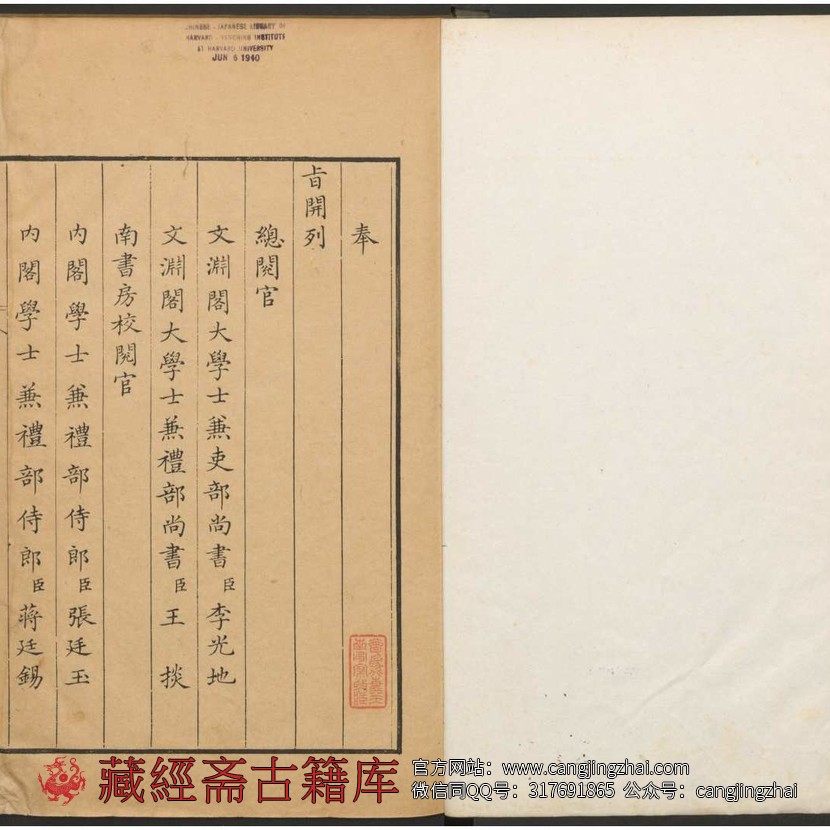 CHINESE - JAPANESE LIBRARY OF
HARVARD - YENCHING INSTITUTE
AT HARVARD UNIVERSITY
JUN 6 1940
奉
旨開列
總閱官
文淵閣大學士兼吏部尚書臣李光地
文淵閣大學士兼禮部尚書臣王掞
南書房校閱官
內閣學士兼禮部侍郎臣張廷玉
內閣學士兼禮部侍郎臣蔣廷錫
藏經斋古籍库
官方网站：www.cangjingzhai.com
微信同QQ号：317691865 公众号：cangjingzhai